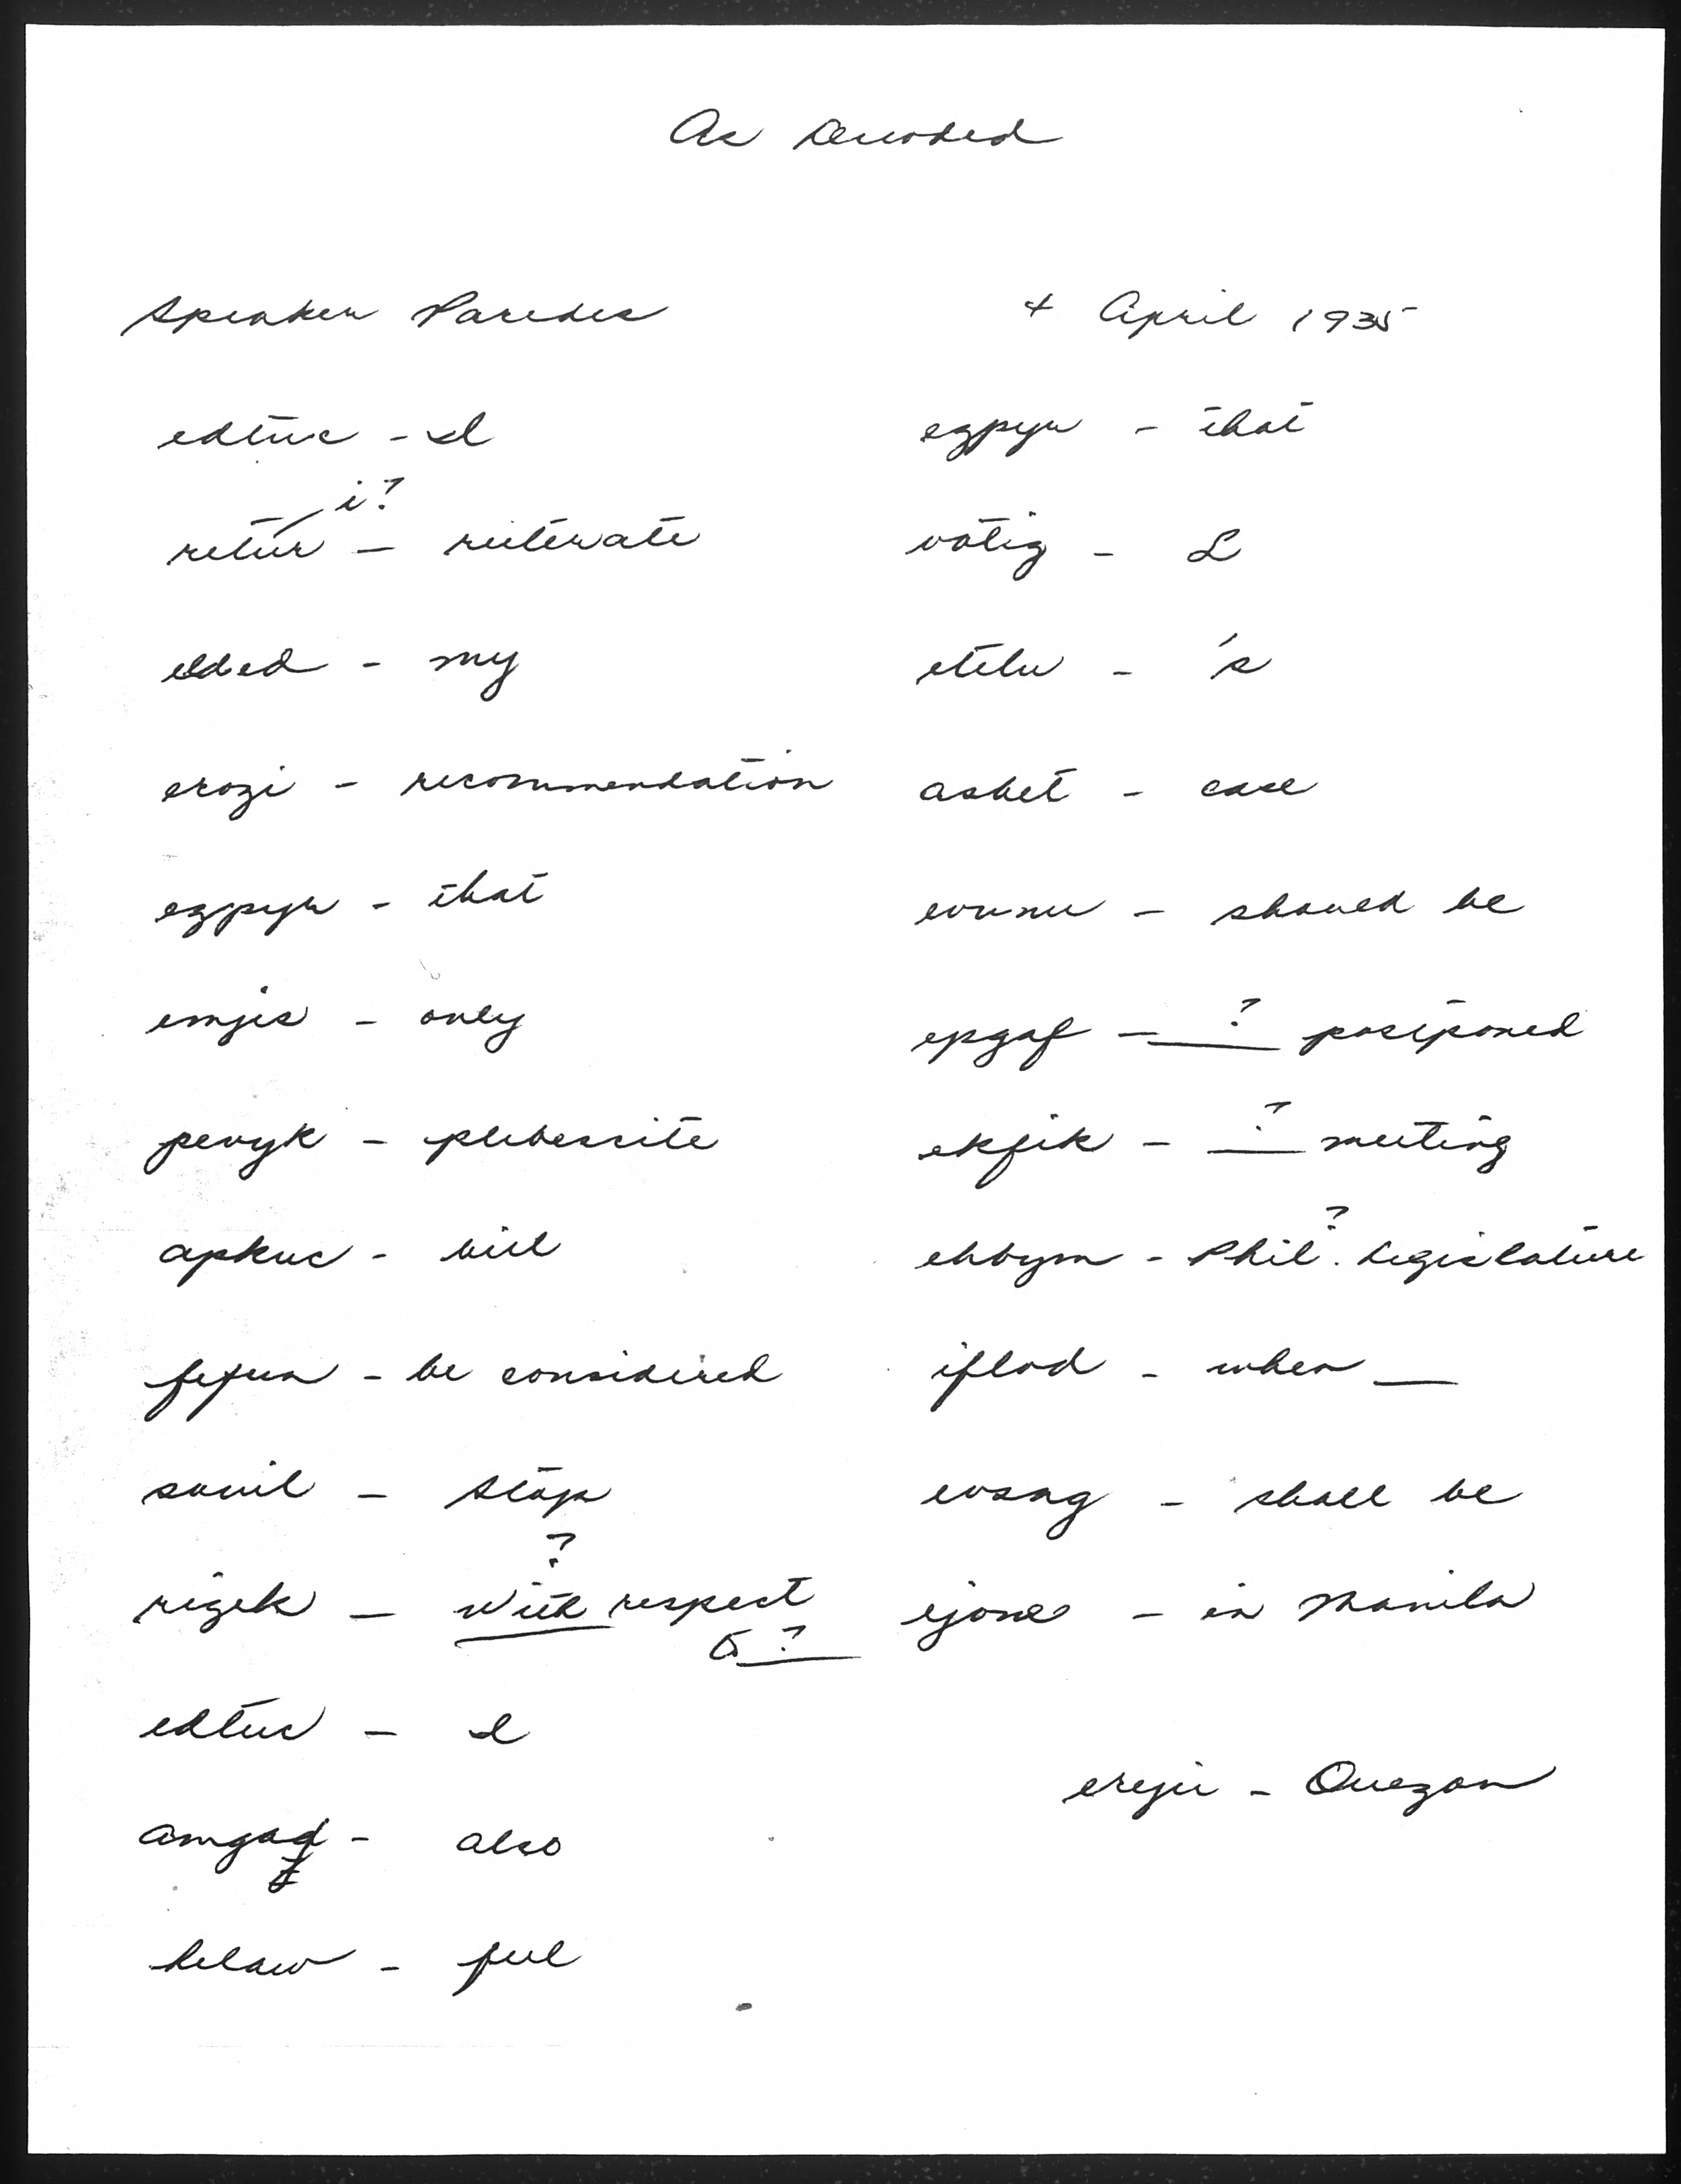 As Decoded
Speaker Paredes
4 April 1935
edtuc - I
i?
retur - reiterate
elded - my
erozi - recommendation
egpyr - that
emjis - only
pevyk - plebescite
apkuc - will
fefua - be considered
sovil - stop
?
rigek - with respect
to ?
edtuc - I
amgaf - also
helaw - feel
egpyr - that
votig - L
etelu - 's
asbet - case
evunu - should be
epgaf - ? postponed
?
ekfik - meeting
?
ehbym - Phil. Legislature
iflod - when
evsag - shall be
ejone - in Manila
ereju - Quezon